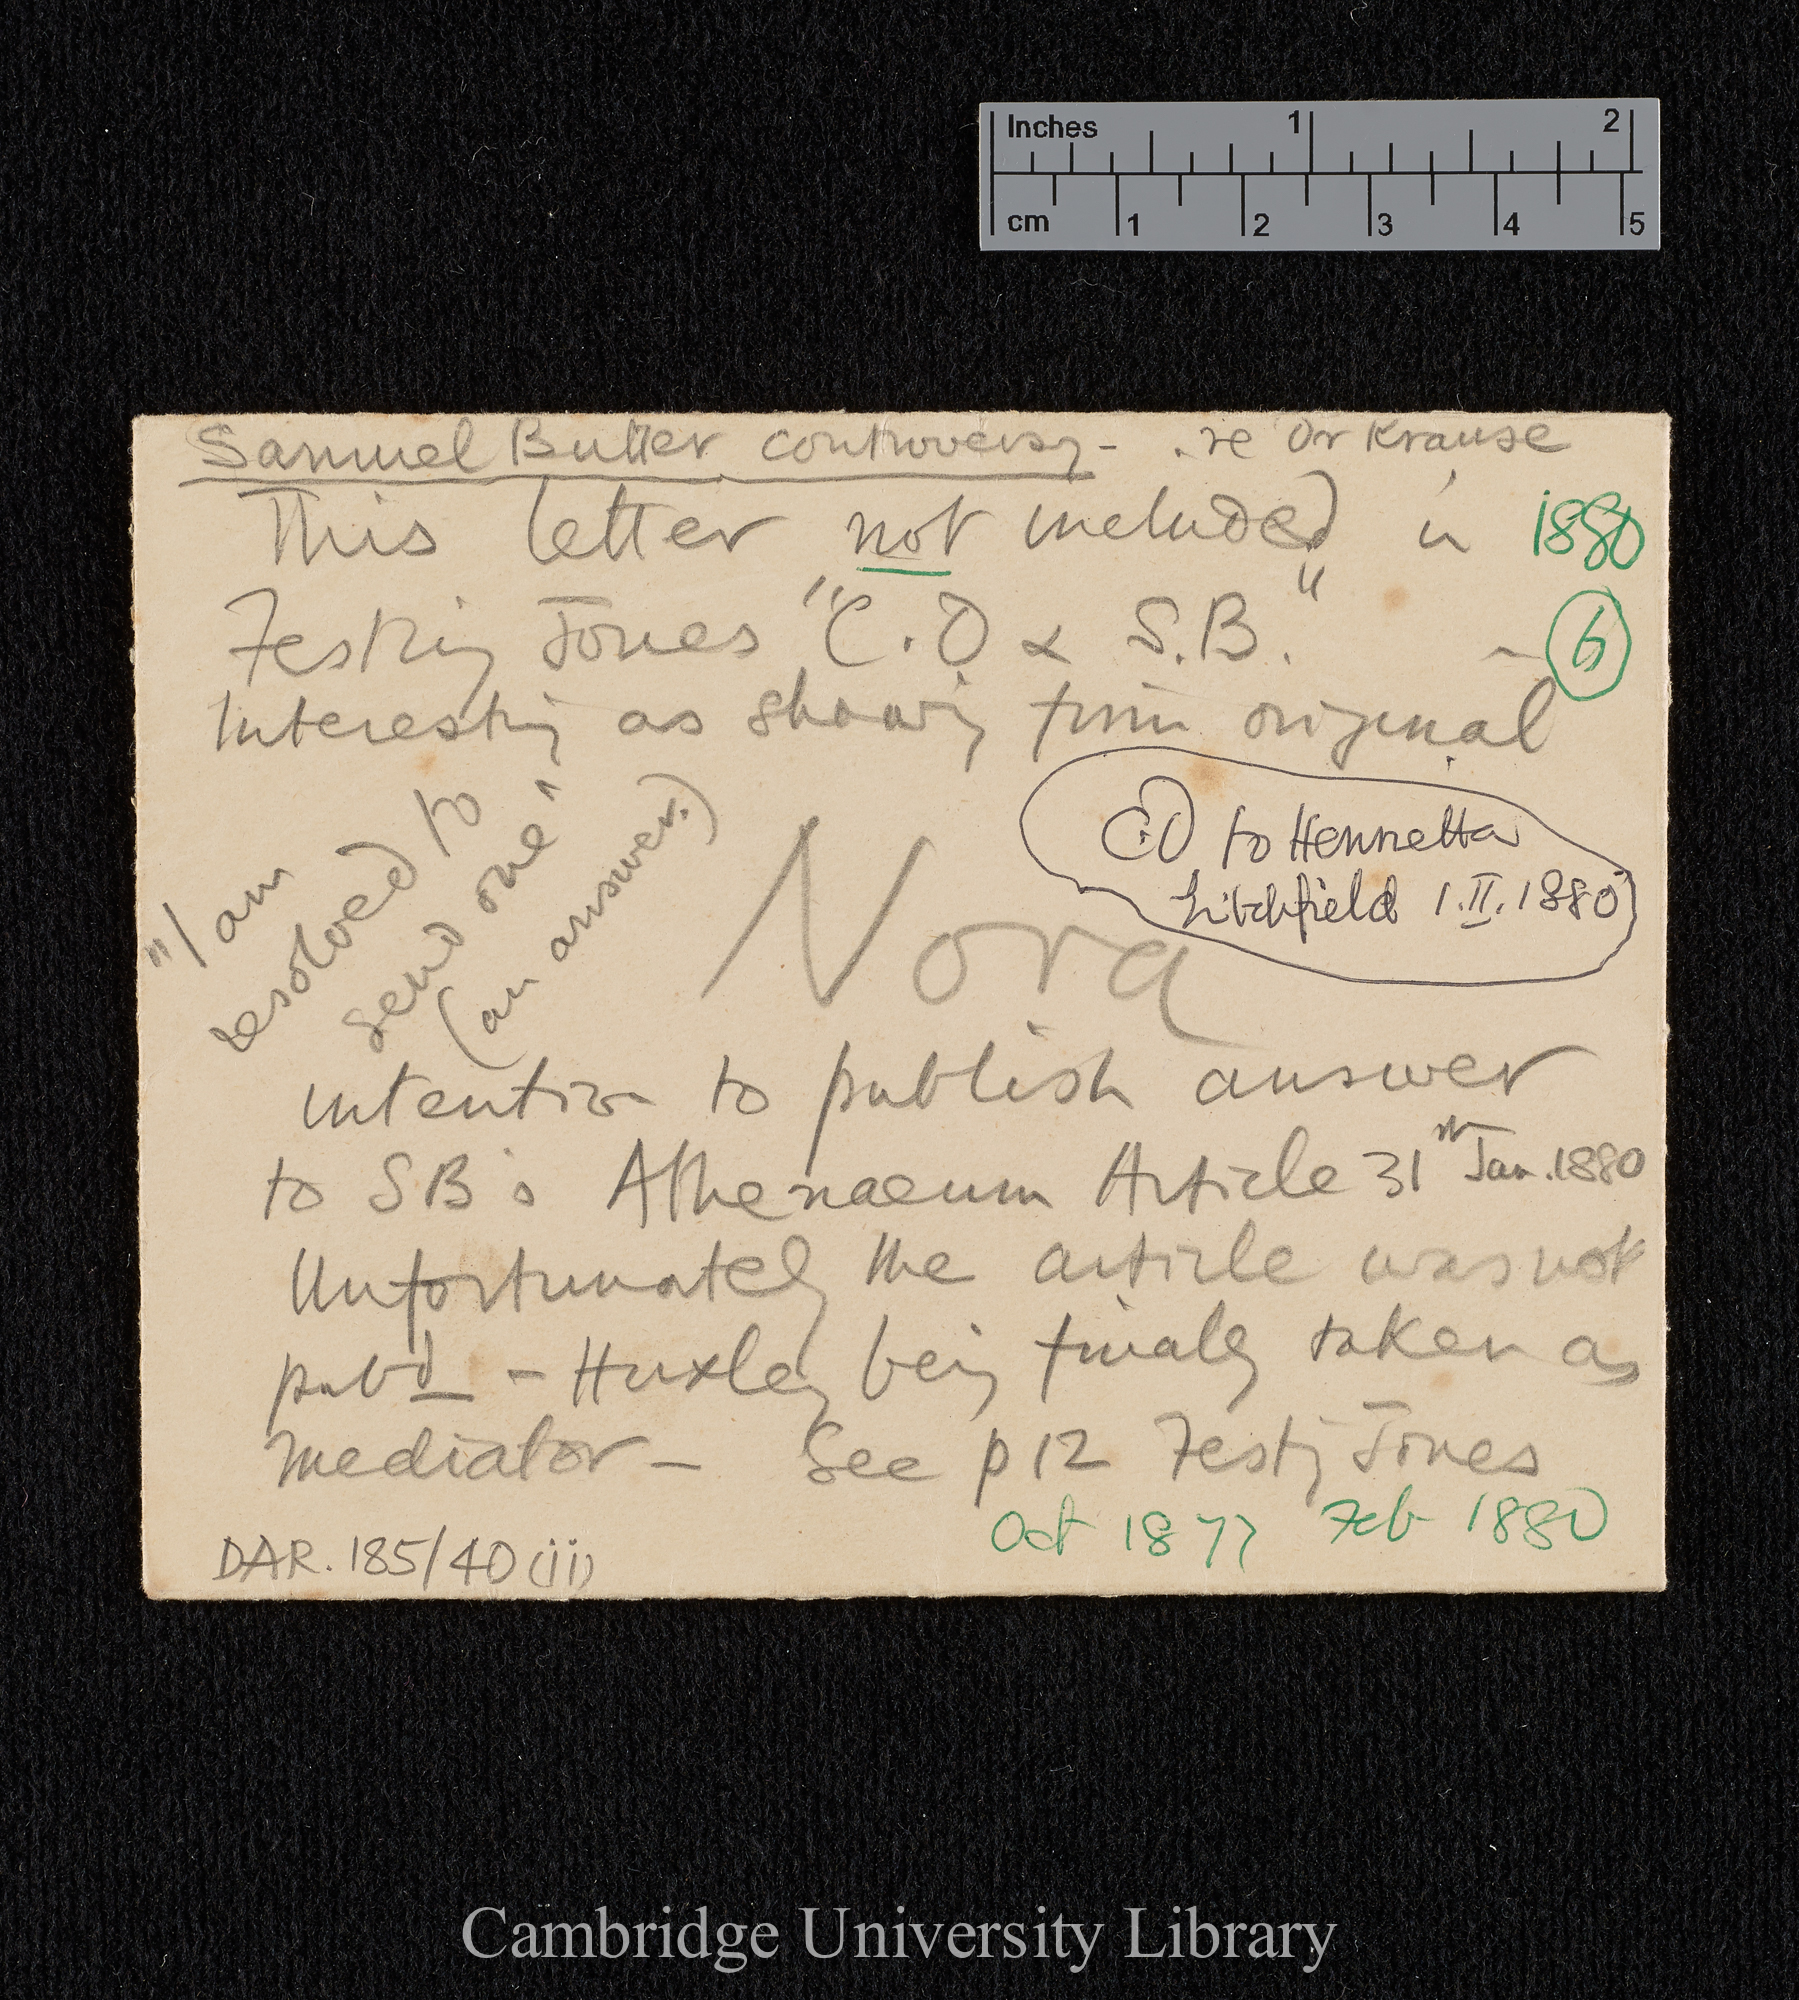 Inches 1 2
cm 1 2 3 4 5
Samuel Butler controversy - re Dr Krause
This letter not included in 1880
Festing Jones "C.D & S.B." - 6
Interesting as showing firm original
"I am
resolved to
send one"
(an answer.)
CD to Henrietta
Litchfield 1.II.1880
Nora
intention to publish answer
to SB's Athenaeum Article 31st Jan. 1880
Unfortunately the article was not
pubd - Huxley being finally taken as
mediator - See p 12 Festg Jones
Oct 1877 Feb 1880
DAR. 185/40 (ii)
Cambridge University Library